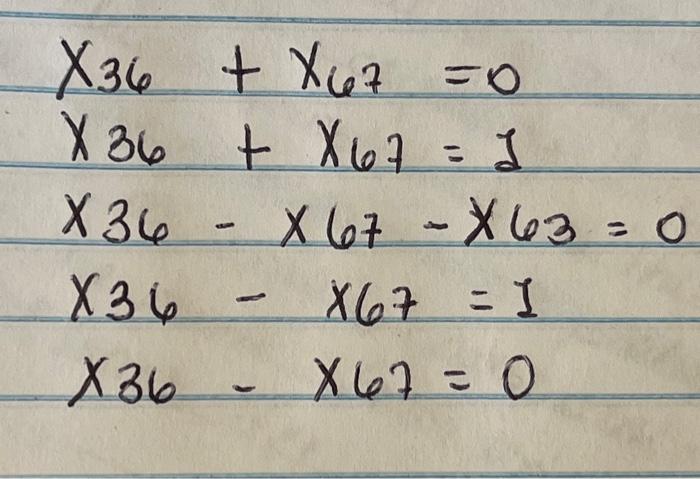 X36 + X67 = 0
X36 + X67 = I
X36 - X67 - X63 = 0
X36 - X67 = I
X36 - X67 = 0